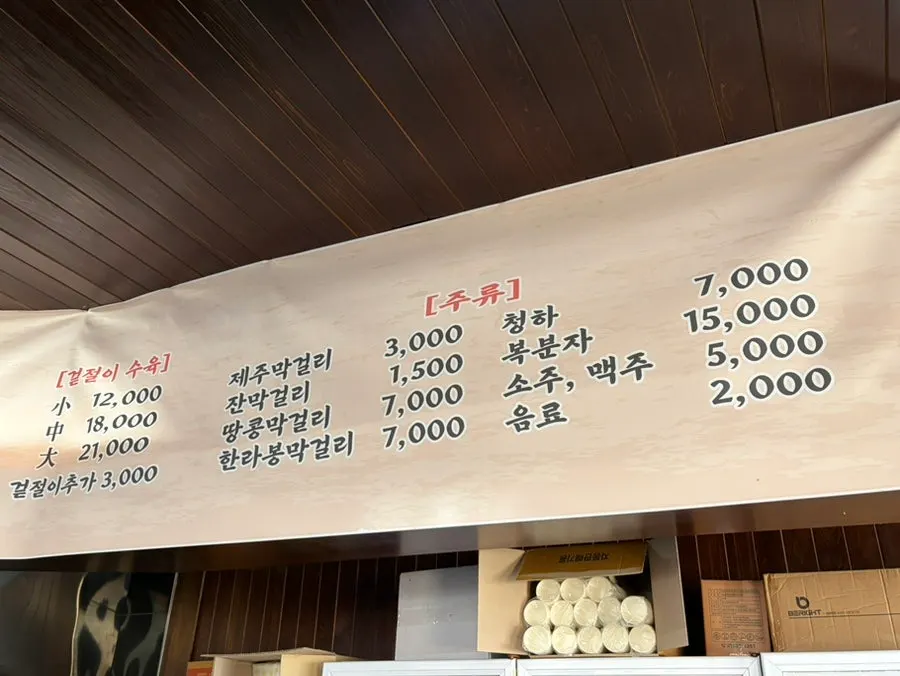 [겉절이 수육]
小 12,000
中 18,000
大 21,000
겉절이추가 3,000
[주류]
제주막걸리 3,000
잔막걸리 1,500
땅콩막걸리 7,000
한라봉막걸리 7,000
청하 7,000
복분자 15,000
소주, 맥주 5,000
음료 2,000
자동판매기용
BERIGHT